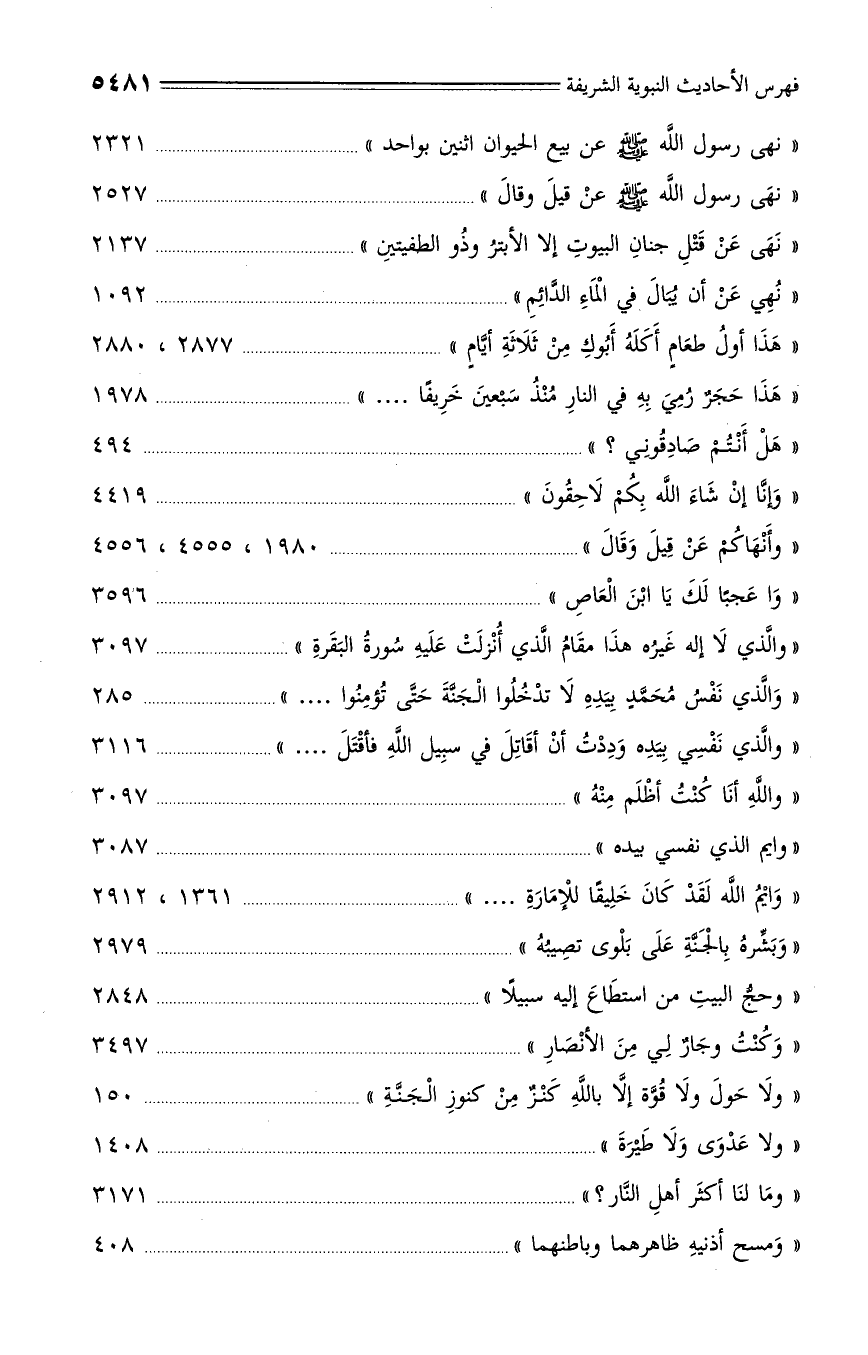 فهرس الأحاديث النبوية الشريفة ٥٤٨١
« نهى رسول اللَّه ﷺ عن بيع الحيوان اثنين بواحد » ٢٣٢١
« نهَى رسول اللَّه ﷺ عنْ قيلَ وقالَ » ٢٥٢٧
« نَهَى عَنْ قَتْلِ جنانِ البيوتِ إلا الأبترُ وذُو الطفيتينِ » ٢١٣٧
« نُهِي عَنْ أن يُبَالَ في الْمَاءِ الدَّائِمِ » ١٠٩٢
« هَذَا أولُ طعَامٍ أَكَلَهُ أَبُوكِ مِنْ ثَلَاثَةِ أيَّامٍ » ٢٨٧٧ ، ٢٨٨٠
« هَذَا حَجَرٌ رُمِيَ بِهِ في النارِ مُنْذُ سَبْعينَ خَرِيفًا .... » ١٩٧٨
« هَلْ أَنْتُمْ صَادِقُونِي ؟ » ٤٩٤
« وَإنَّا إنْ شَاءَ اللَّه بِكُمْ لَاحِقُونَ » ٤٤١٩
« وأَنْهَاكُمْ عَنْ قِيلَ وَقَالَ » ١٩٨٠ ، ٤٥٥٥ ، ٤٥٥٦
« وَا عَجبًا لَكَ يَا ابْنَ الْعَاصِ » ٣٥٩٦
« والَّذي لَا إله غَيرُه هذَا مقَامُ الَّذي أُنْزلَتْ عَلَيهِ سُورةُ البَقَرةِ » ٣٠٩٧
« وَالَّذي نَفْسُ مُحَمَّدٍ بِيَدِهِ لَا تدْخُلُوا الْجَنَّةَ حَتَّى تُؤمِنُوا .... » ٢٨٥
« والَّذي نَفْسِي بِيَدِه وَدِدْتُ أنْ أقَاتِلَ في سبِيل اللَّهِ فأقْتَلَ .... » ٣١١٦
« واللَّهِ أنَا كُنْتُ أظْلَم مِنْهُ » ٣٠٩٧
« وايم الذي نفسي بيده » ٣٠٨٧
« وَايْمُ اللَّه لَقَدْ كَانَ خَلِيقًا للْإمَارَةِ .... » ١٣٦١ ، ٢٩١٢
« وَبَشِّرهُ بِالْجَنَّةِ عَلَى بَلْوى تصِيبُهُ » ٢٩٧٩
« وحجُّ البيتِ من استطَاعَ إليه سبيلًا » ٢٨٤٨
« وَكُنْتُ وجَارٌ لِي مِنَ الأنْصَارِ » ٣٤٩٧
« ولَا حَولَ ولَا قُوَّة إلَّا باللَّهِ كَنْزٌ مِنْ كنوزِ الْجَنَّةِ » ١٥٠
« ولا عَدْوَى وَلَا طَيْرَةَ » ١٤٠٨
« ومَا لنَا أكثَر أهلِ النَّار ؟ » ٣١٧١
« وَمسح أذنيهِ ظاهرهما وباطنهما » ٤٠٨